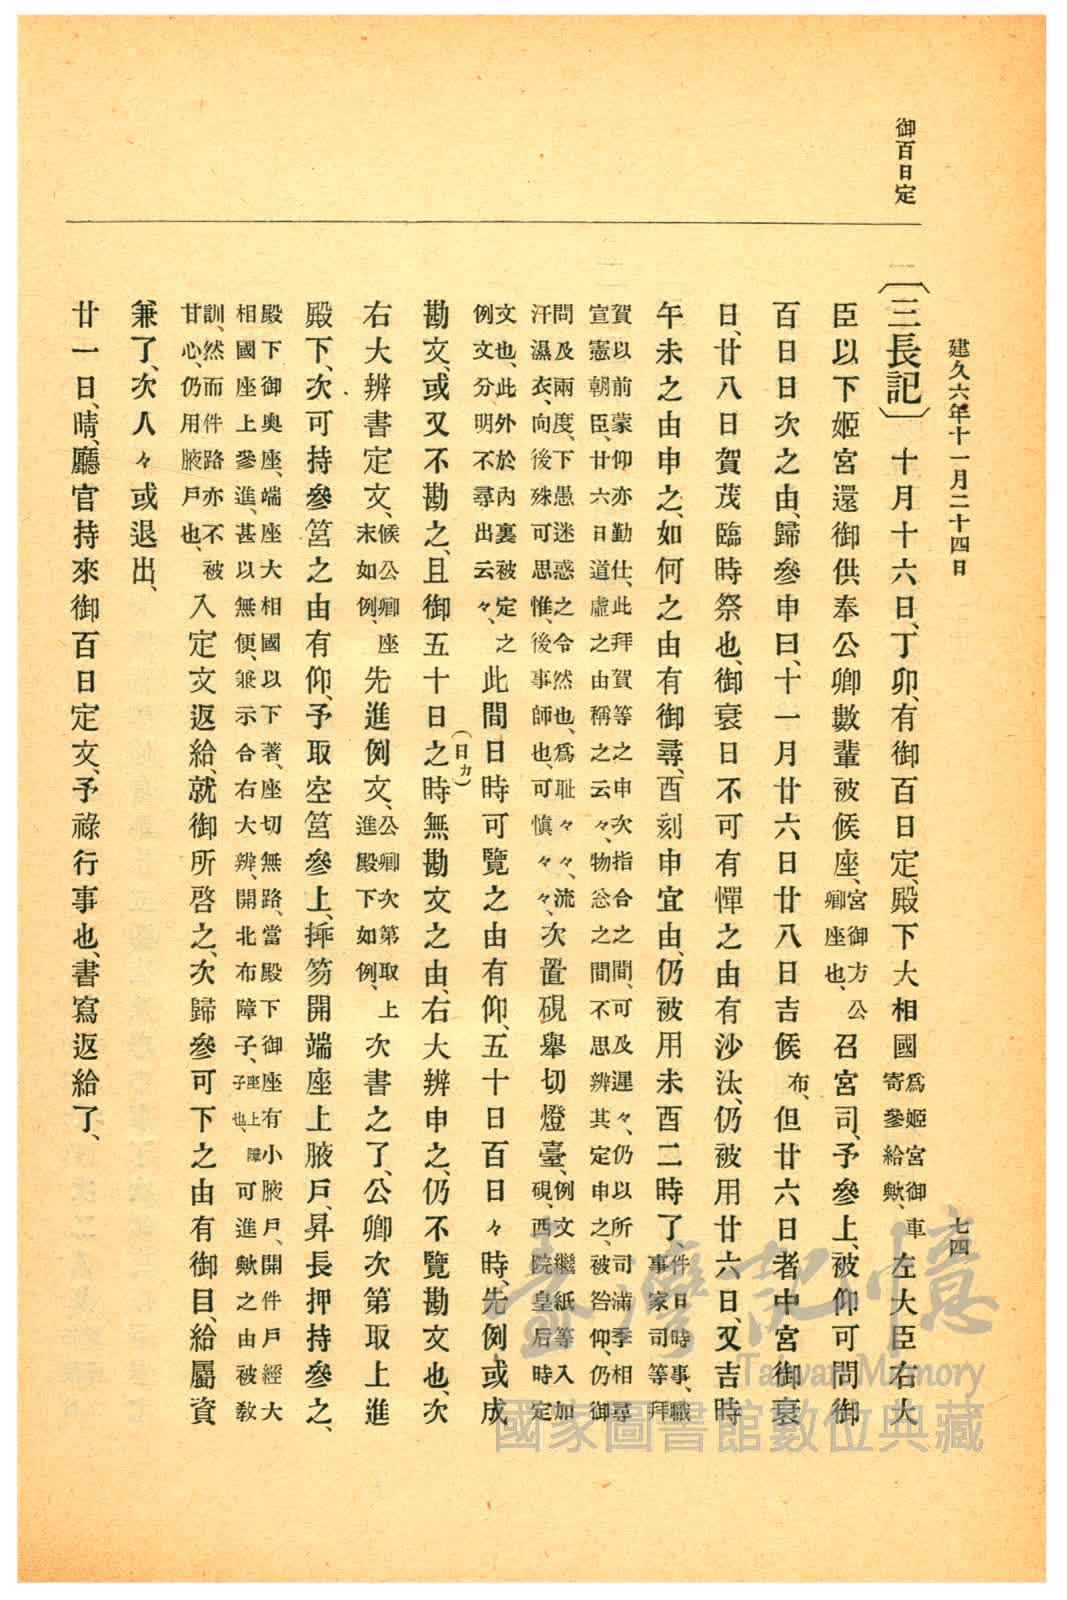 御百日定
建久六年十一月二十四日
七四
〔三長記〕十月十六日、丁卯、有御百日定、殿下大相國爲姬宮御車寄參給歟、左大臣右大
臣以下姬宮還御供奉公卿數輩被候座、宮御方公卿座也、召宮司、予參上、被仰可問御
百日日次之由、歸參申曰、十一月廿六日廿八日吉候布、但廿六日者中宮御衰
日、廿八日賀茂臨時祭也、御衰日不可有憚之由有沙汰、仍被用廿六日、又吉時
午未之由申之、如何之由有御尋、酉刻申宜由、仍被用未酉二時了、件日時事、職事家司等拜
賀以前蒙仰亦勤仕、此拜賀等之申次指合之間、可及遲々、仍以所司滿季相尋
宣憲朝臣、廿六日道虛之由稱之云々、物忩之間不思辨其定申之、被咎仰、仍御
問及兩度、下愚迷惑之令然也、爲耻々々、流
汗濕衣、向後殊可思惟、後事師也、可愼々々、次置硯舉切燈臺、例文繼紙等入加硯、西院皇后時定
文也、此外於內裏被定之
例文分明不尋出云々、此間日時可覽之由有仰、五十日百日々時、先例或成
勘文、或又不勘之、且御五十日之時(日カ)無勘文之由、右大辨申之、仍不覽勘文也、次
右大辨書定文、候公卿座末如例、先進例文、公卿次第取上進殿下如例、次書之了、公卿次第取上進
殿下、次可持參筥之由有仰、予取空筥參上、揷笏開端座上腋戶、昇長押持參之、
殿下御奥座、端座大相國以下著、座切無路、當殿下御座有小腋戶、開件戶經大
相國座上參進、甚以無便、兼示合右大辨、開北布障子、座上障子也、可進歟之由被敎
訓、然而件路亦不被
甘心、仍用腋戶也、入定文返給、就御所啓之、次歸參可下之由有御目、給屬資
兼了、次人々或退出、
廿一日、晴、廳官持來御百日定文、予祿行事也、書寫返給了、
臺灣記憶
Taiwan Memory
國家圖書館數位典藏